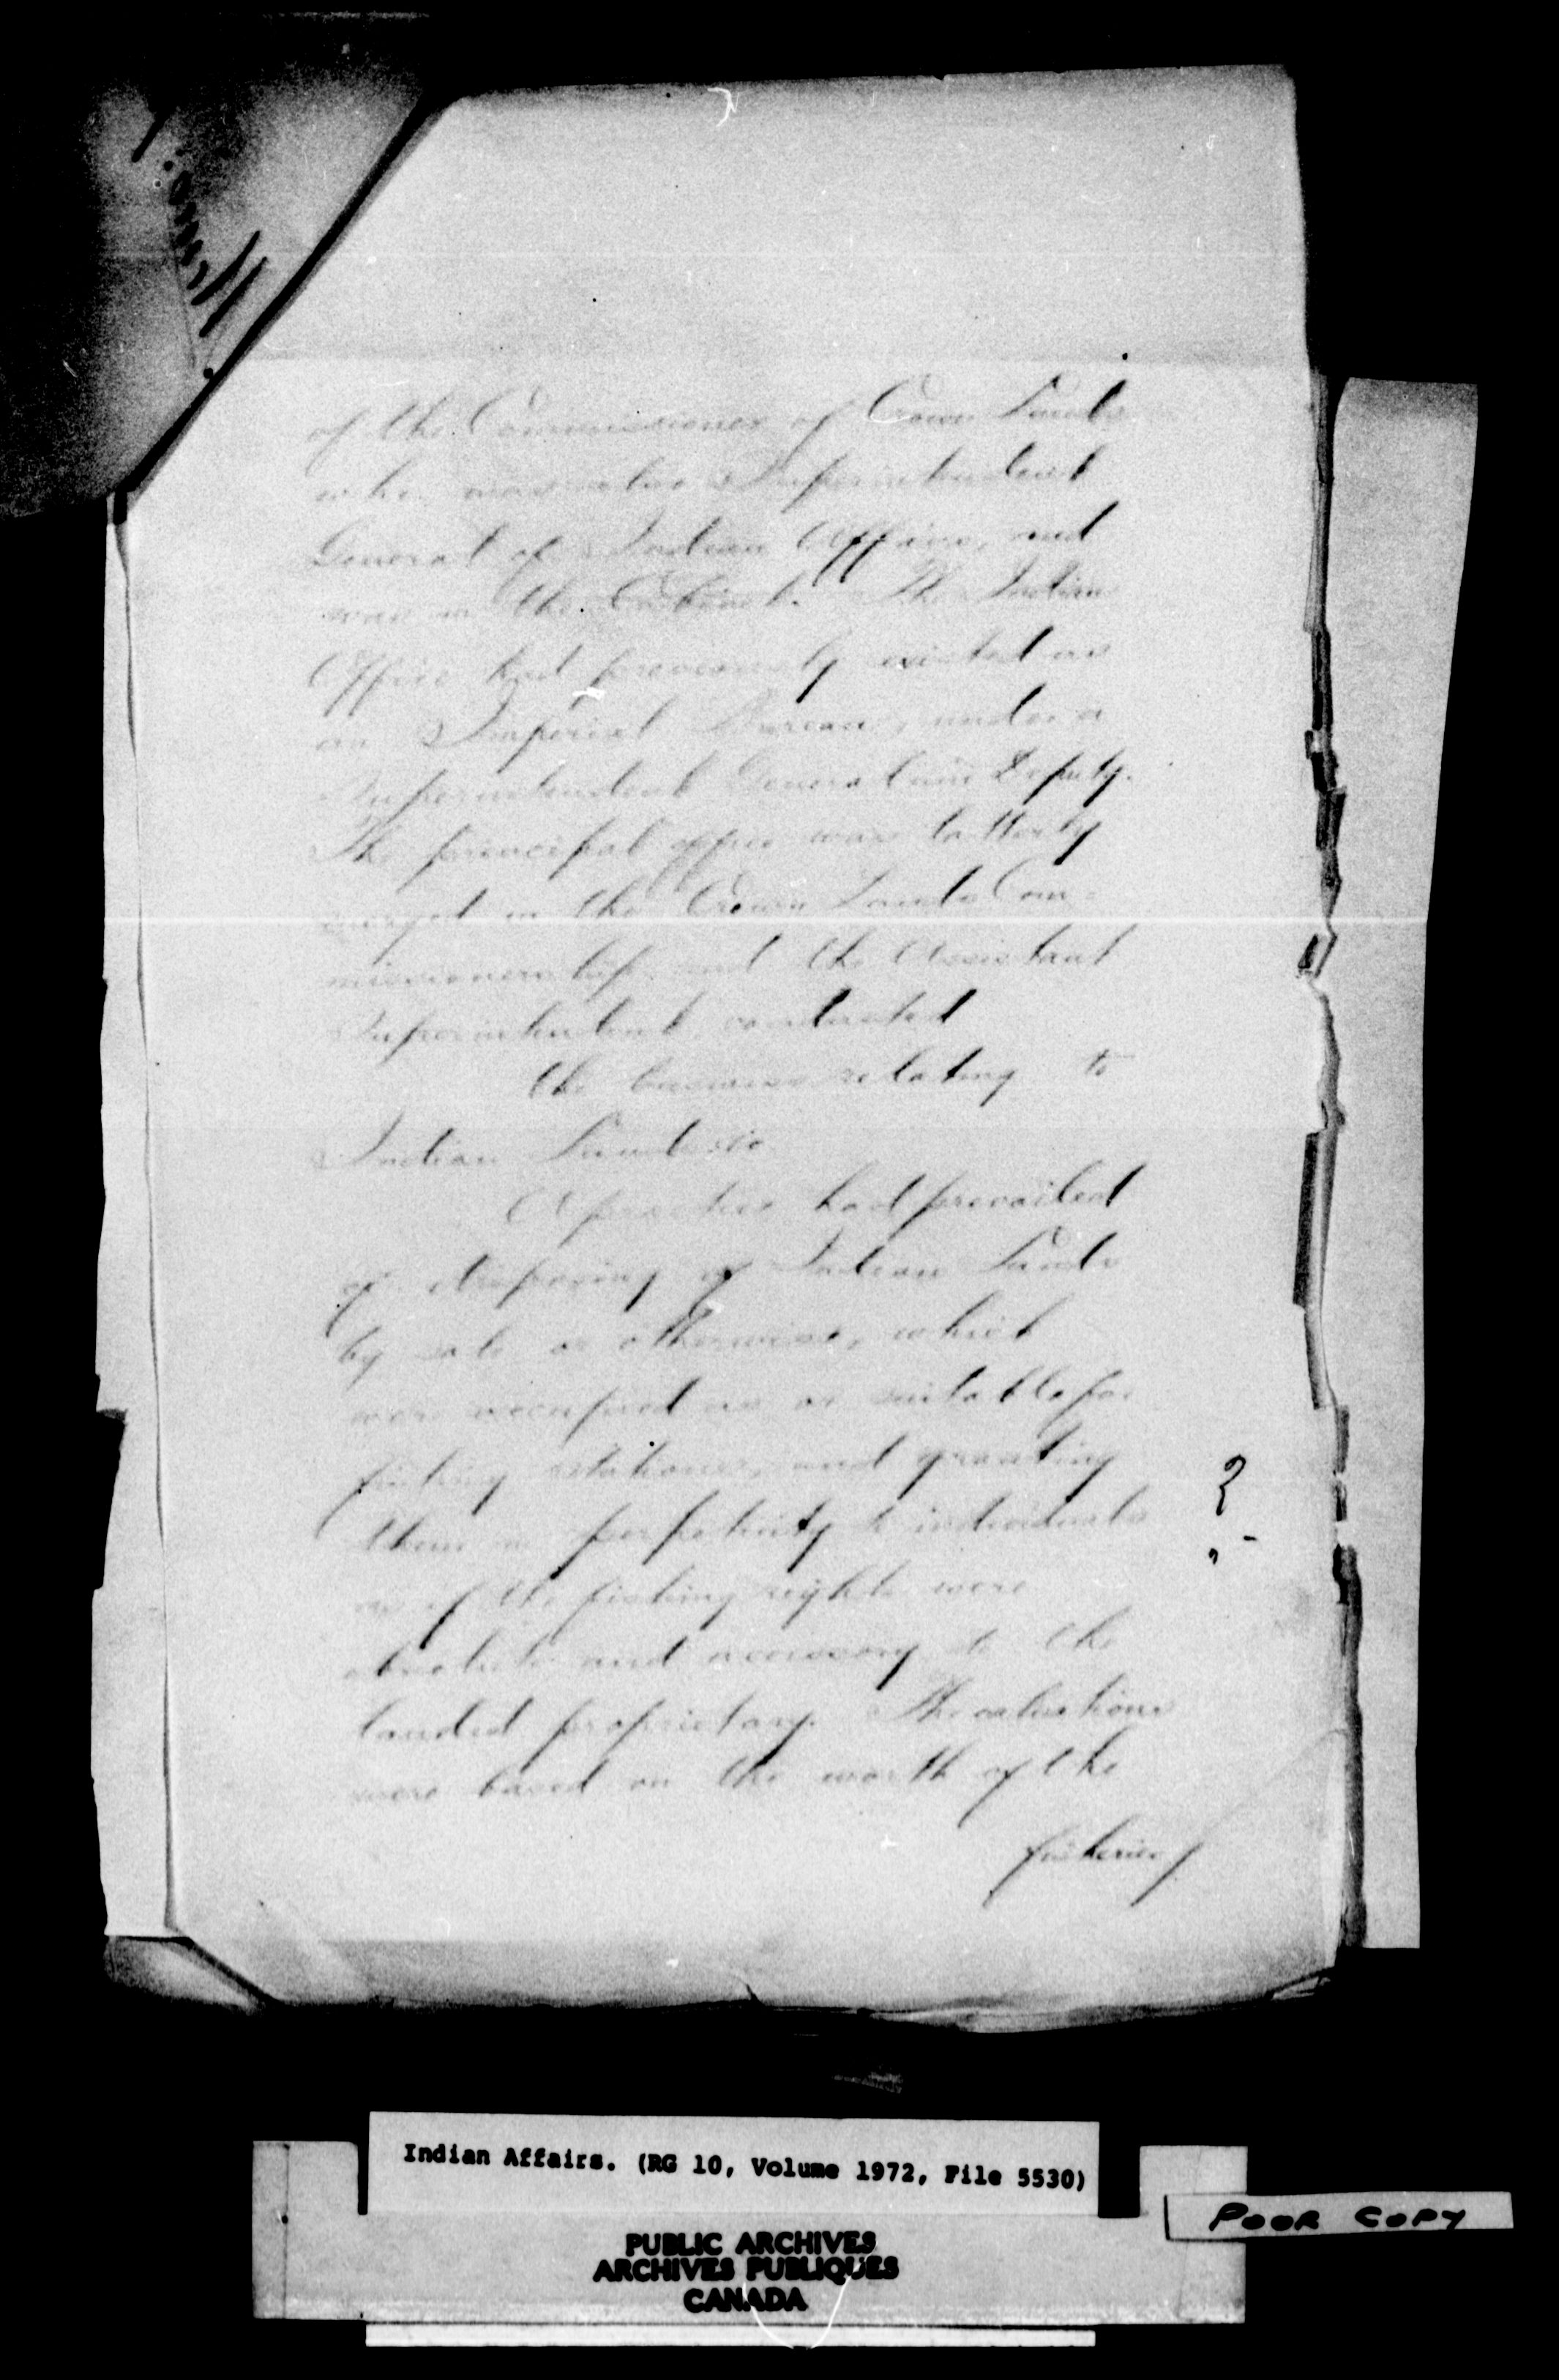 of the Commissioner of Crown Lands
who was also Superintendent
General of Indian Affairs, and
was in the Cabinet. The Indian
Office had previously existed as
an Imperial Bureau, under a
Superintendent General and Deputy.
The principal office was latterly
merged in the Crown Lands Com-
missionership and the Assistant
Superintendent conducted
the business relating to
Indian Lands
A practice had prevailed
of disposing of Indian Lands
by sale or otherwise, which
were occupied as or suitable for
fishing stations, and granting
them in perpetuity to individuals
as if the fishing rights were
absolute and accessory to the
landed proprietary. The valuations
were based on the worth of the
fisheries
?
Indian Affairs. (RG 10, Volume 1972, File 5530)
POOR COPY
PUBLIC ARCHIVES
ARCHIVES PUBLIQUES
CANADA